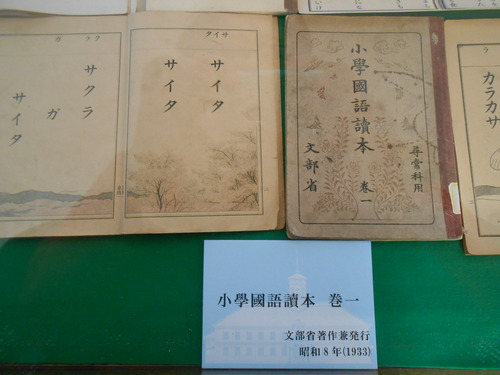 サイタ
サイタ
サイタ
サクラ
ガ
サイタ
尋常科用
小學國語讀本 巻一
文部省
カラカサ
小學國語讀本 巻一
文部省著作兼発行
昭和8年(1933)